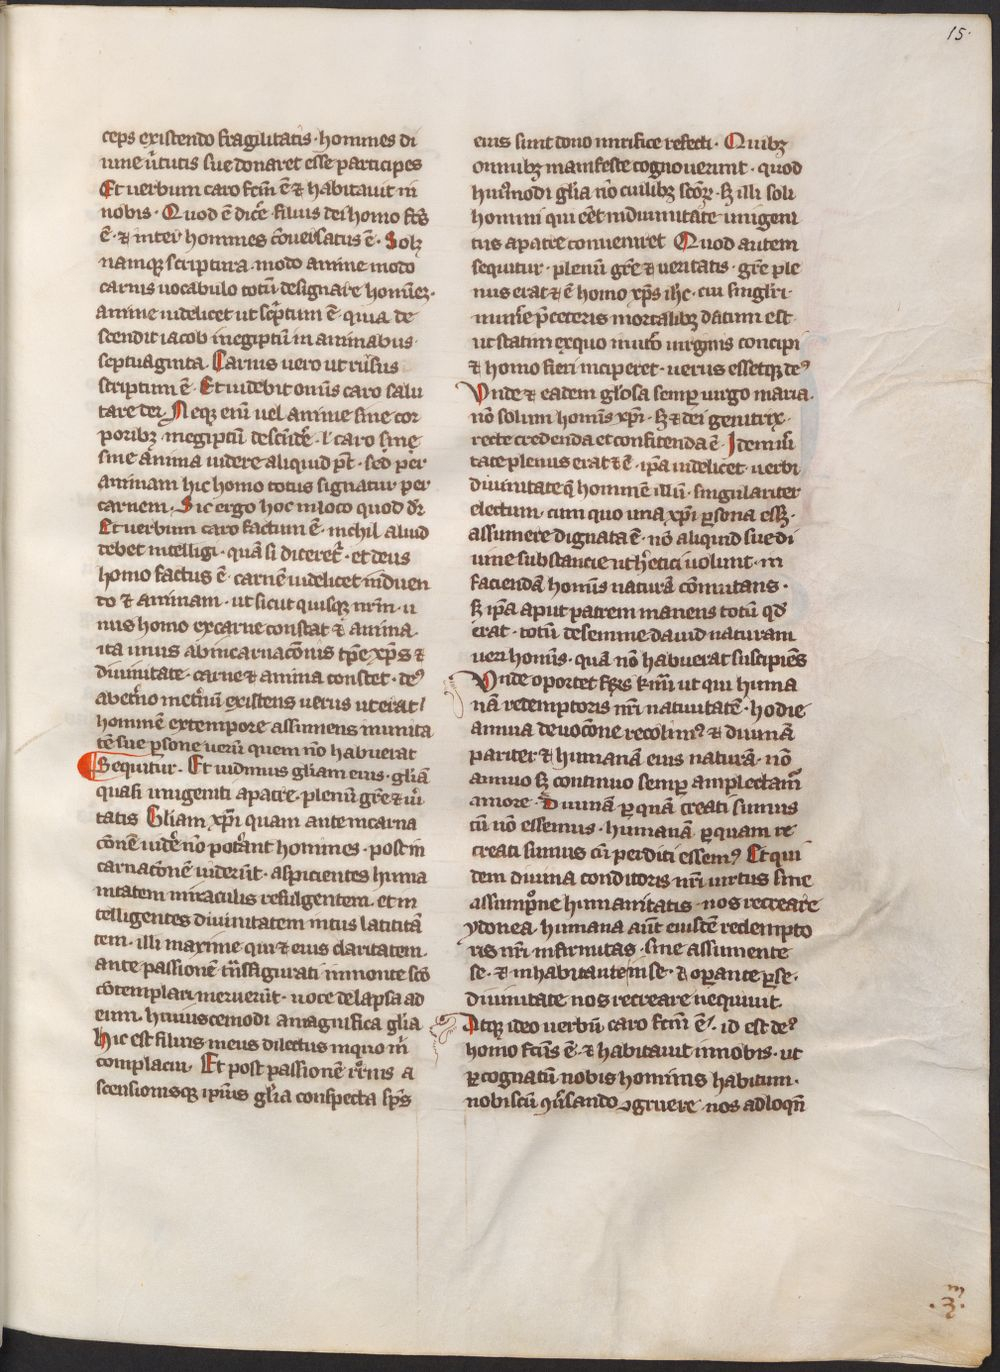 15.
ceps existendo fragilitatis · homines di
uine ũtutis sue donaret esse participes
Et uerbum caro fcm̃ ẽ ⁊ habitauit in
nobis · Quod ẽ dicẽ · filius dei homo fcs̃
ẽ · ⁊ inter homines cõuersatus ẽ · Solꝫ
namqꝫ scriptura · modo anime modo
carnis uocabulo totũ designare hominẽ ·
anime uidelicet ut scptum ẽ · quia de
scendit iacob inegiptũ in animabus ·
septuaginta · Carnis uero ut rursus
scriptum ẽ · Et uidebit omnis caro salu
tare dei · Neqꝫ eni uel anime sine cor
poribꝫ · inegiptũ descendẽ · ł caro sine
sine anima uidere aliquid pt̃ · sed per
animam hic homo totus signatur per
carnem · Sic ergo hoc inloco quod dr̃
Et uerbum caro factum ẽ · nichil aliud
debet intelligi · quã si diceret᷑ · et deus
homo factus ẽ · carnẽ uidelicet induen
do ⁊ animam · ut sicut quisqꝫ nr̃m · u
nus homo excarne constat ⁊ anima ·
ita unus abincarnacõnis tp̃e xp̃s ⁊
diuinitate · carne ⁊ anima constet · deꝰ
abet̾no inet̾nũ existens uerus ut erat /
hominẽ extempore assumens inunita
tẽ sue ꝑsone uerũ quem nõ habuerat
Sequitur · Et uidimus gliam eius · gliã
quasi unigeniti apatre · plenũ gr̃e ⁊ ui
tatis Gliam xp̃i quam ante incarna
cõnẽ uidẽ nõ pot̾ant homines · post in
carnacõnẽ uiderũt · aspicientes huma
nitatem miraculis refulgentem · et in
telligentes diuinitatem intus latititã
tem · illi maxime qui ⁊ eius claritatem ·
ante passionẽ tñsfigurati inmonte scõ
cõtemplari meruerũt · uoce delapsa ad
eum · huiuscemodi amagnifica glia
hic est filius meus dilectus inquo m̃
complacui · Et post passionẽ
scensionisqꝫ ip̃ius gl̃ia conspecta sp̃s
eius sunt dono mirifice refecti · Quibꝫ
omnibꝫ manifeste cognouerunt · quod
hui᷑modi glia nõ cuilibꝫ scõꝝ · sꝫ illi soli
homini qui eẽt indiuinitate unigeni
tus apatre conueniret Quod autem
sequitur · plenũ gr̃e ⁊ ueritatis · gr̃e ple
nus erat ⁊ ẽ homo xp̃s ihc̃ · cui singlri
munẽ p̃ceteris mortalibꝫ datum est ·
ut statim exquo inuto᷑ uirginis concipi
⁊ homo fieri inciperet · uerus essetqꝫ deꝰ
Vnde ⁊ eadem gl̃osa semp̱ uirgo maria ·
nõ solum hominis xp̃i · sꝫ ⁊ dei genitrix ·
recte credenda et confitenda ẽ · Idem ui
tate plenus erat ⁊ ẽ · ip̃a uidelicet uerbi
diuinitate q̃ hominẽ illũ · singulariter
electum · cum quo una xp̃i ꝑsona essꝫ ·
assumere dignata ẽ · nõ aliquid sue di
uine substancie ut h̾etici uolunt · in
faciendã hominis naturã cõmutans ·
sꝫ ip̃a aput patrem manens totũ qd̾
erat · totũ desemine dauid naturam
ueri hominis · quã nõ habuerat suscipiẽs
Vnde oportet frs̃ kmĩ ut qui huma
nã redemptoris nr̃i natiuitatẽ · hodie
annua deuocõne recolimꝰ ⁊ diuinã
pariter ⁊ humanã eius naturã · nõ
annuo sꝫ continuo semp̱ amplectamꝰ
amore · Diuinã ꝑ quã creati sumus
cũ nõ essemus · humanã ꝑ quam re
creati sumus cũ perditi essemꝰ Et qui
dem diuina conditoris nr̃i uirtus sine
assumpõne humanitatis · nos recreare
ydonea · humana aũt eiusdẽ redempto
ris nr̃i infirmitas · sine assumente
se · ⁊ inhabitante inse · ⁊ oꝑante ꝑ se ·
diuinitate nos recreare nequiuit ·
Atqꝫ ideo uerbũ caro fcm̃ ẽ / id est deꝰ
homo fcũs ẽ · ⁊ habitauit innobis · ut
ꝑ cognatũ nobis hominis habitum ·
nobiscũ ꝯũsando ꝯgruere · nos adloqñ
· 3 · m